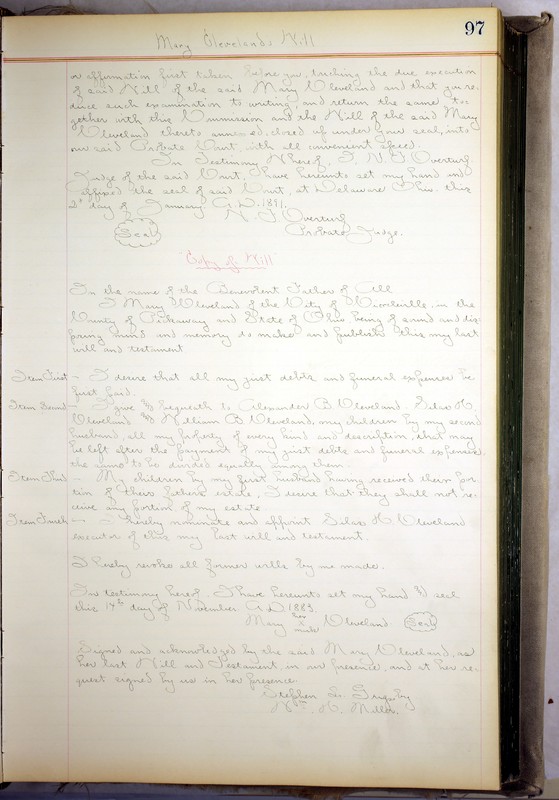 97
Mary Cleveland's Will
or affirmation first taken before you, touching the due execution
of said Will of the said Mary Cleveland and that you re-
duce such examination to writing, and return the same, to-
gether with this Commission and the Will of the said Mary
Cleveland thereto annexed, closed up under your seal, into
our said Probate Court, with all convenient speed.
In Testimony Whereof, I, N. F. Overturf
Judge of the said Court, have hereunto set my hand and
affixed the seal of said Court, at Delaware Ohio. this
2d day of January A.D. 1891.
N. F. Overturf
Seal
Probate Judge.
Copy of Will
In the name of the Benevolent Father of All
I Mary Cleveland of the City of Circleville, in the
County of Pickaway and State of Ohio, being of sound and dis-
posing mind and memory do make and publish this my last
will and testament
Item First - I desire that all my just debts and funeral expenses be
first paid.
Item Second - I give & bequeath to Alexander B Cleveland, Silas H.
Cleveland & William B Cleveland, my children by my second
husband, all my property of every kind and description, that may
be left after the payment of my just debts and funeral expenses,
the same to be divided equally among them.
Item Third - My children by my first husband having received their por-
tion of their fathers estate, I desire that they shall not re-
ceive any portion of my estate
Item Fourth - I hereby nominate and appoint Silas H. Cleveland
executor of this my last will and testament.
I hereby revoke all former wills by me made.
In testimony hereof, I have hereunto set my hand & seal
this 14th day of November A.D. 1883.
Mary her x mark Cleveland Seal
Signed and acknowledged by the said Mary Cleveland, as
her last Will and Testament, in our presence, and at her re-
quest signed by us in her presence.
Stephen Grigsby
Wm. H. Miller.